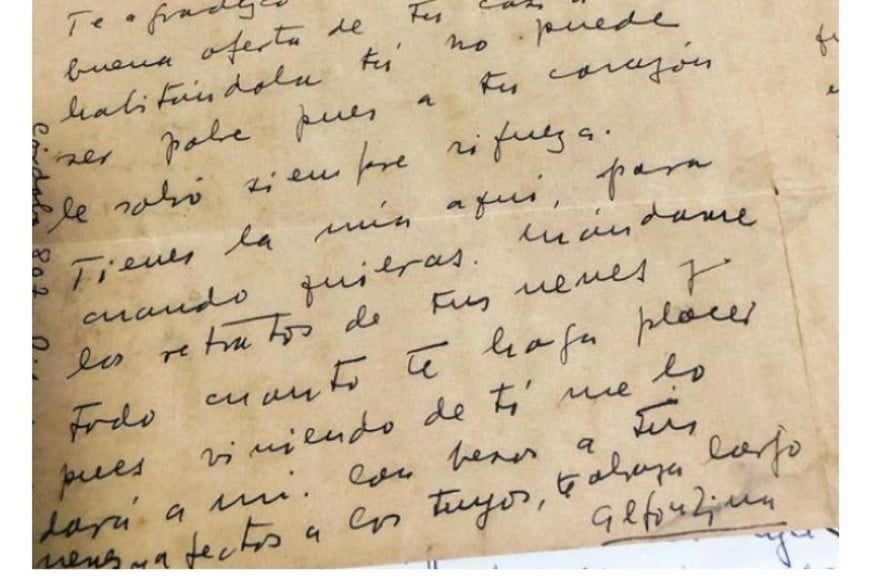 Te agradezco
buena oferta de tu casa
habitándola tú no puede
ser pobre pues a tu corazón
le sobró siempre rifueza.
Tienes la mía aquí, para
cuando quieras. Mándame
los retratos de tus nenes y
todo cuanto te haga placer
pues viniendo de tí me lo
dará a mi. Con besos a tus
nenes, afectos a los tuyos, te abraza largo
Alfonsina
Córdoba 807